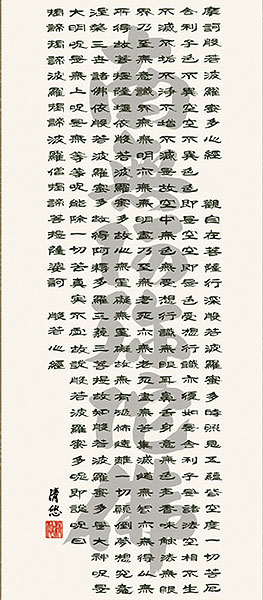 摩訶般若波羅蜜多心經　觀自在菩薩行深般若波羅蜜多時照見五蘊皆空度一切苦厄
舍利子色不異空空不異色色即是空空即是色受想行識亦復如是舍利子是諸法空相不生
不滅不垢不淨不增不減是故空中無色無受想行識無眼耳鼻舌身意無色聲香味觸法無眼
界乃至無意識界無無明亦無無明盡乃至無老死亦無老死盡無苦集滅道無智亦無得以無
所得故菩提薩埵依般若波羅蜜多故心無罣礙無罣礙故無有恐怖遠離一切顛倒夢想究竟
涅槃三世諸佛依般若波羅蜜多故得阿耨多羅三藐三菩提故知般若波羅蜜多是大神呪是
大明呪是無上呪是無等等呪能除一切苦真實不虛故說般若波羅蜜多呪即說呪曰
揭諦揭諦波羅揭諦波羅僧揭諦菩提薩婆訶　般若心經
清悠
南無阿彌陀佛